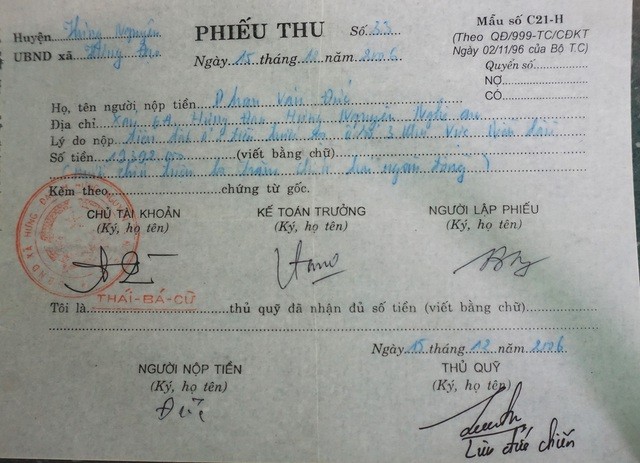 Huyện Hưng Nguyên
UBND xã Hưng Đạo
PHIẾU THU
Số 33
Ngày 15 tháng 12 năm 2006
Mẫu số C21-H
(Theo QĐ/999-TC/CĐKT
Ngày 02/11/96 của Bộ T.C)
Quyển số
NỢ
CÓ
Họ, tên người nộp tiền Phan Văn Đức
Địa chỉ Xóm 6A Hưng Đạo Hưng Nguyên Nghệ An
Lý do nộp tiền đất ở
Số tiền (viết bằng chữ)
ngàn đồng
Kèm theo chứng từ gốc.
CHỦ TÀI KHOẢN
(Ký, họ tên)
KẾ TOÁN TRƯỞNG
(Ký, họ tên)
NGƯỜI LẬP PHIẾU
(Ký, họ tên)
THÁI-BÁ-CỪ
Tôi là thủ quỹ đã nhận đủ số tiền (viết bằng chữ)
Ngày 15 tháng 12 năm 2006
NGƯỜI NỘP TIỀN
(Ký, họ tên)
Đức
THỦ QUỸ
(Ký, họ tên)
Lưu Đức Chiến